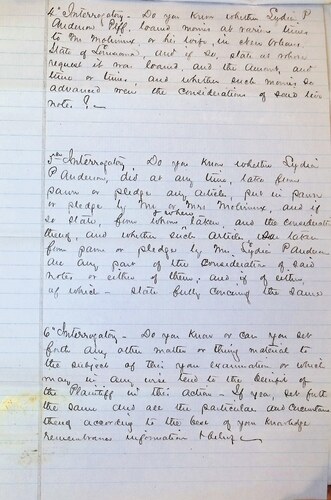 4th Interrogatory - Do you know whether Lydia P
Anderson Plff. loaned monies at various times
to Mr Molineux or his wife, in New Orleans,
State of Louisiana, and if so, state at whose
request it was loaned, and the amount, and
time or times, and whether such monies so
advanced were the considerations of said
note. ? -
5th Interrogatory, Do you know whether Lydia
P Anderson, did at any time, take from
pawn or pledge any article put in pawn
or pledge by Mr or Mrs Molineux, and if
so state, from whom & when taken and the consideration
thereof, and whether such article so taken
from pawn or pledge by Mrs Lydia P Anderson
are any part of the consideration of said
notes or either of them, and if of either,
of which - state fully concerning the same
6th Interrogatory - Do you know or can you set
forth any other matter or thing material to
the subject of this your examination or which
may in any wise tend to the benefit of
the Plaintiff in this action - If yea, set forth
the same and all the particulars and circumstances
thereof according to the best of your knowledge
remembrance information & belief